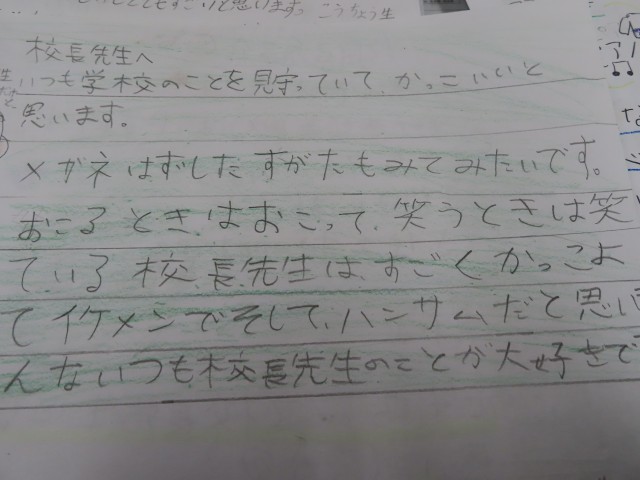 てもすごいと思います。こうちょう生
校長先生へ
いつも学校のことを見守っていて、かっこいいと
思います。
メガネはずしたすがたもみてみたいです。
おこるときはおこって、笑うときは笑
ている校長先生は、すごくかっこよ
てイケメンでそして、ハンサムだと思い
んないつも校長先生のことが大好きで